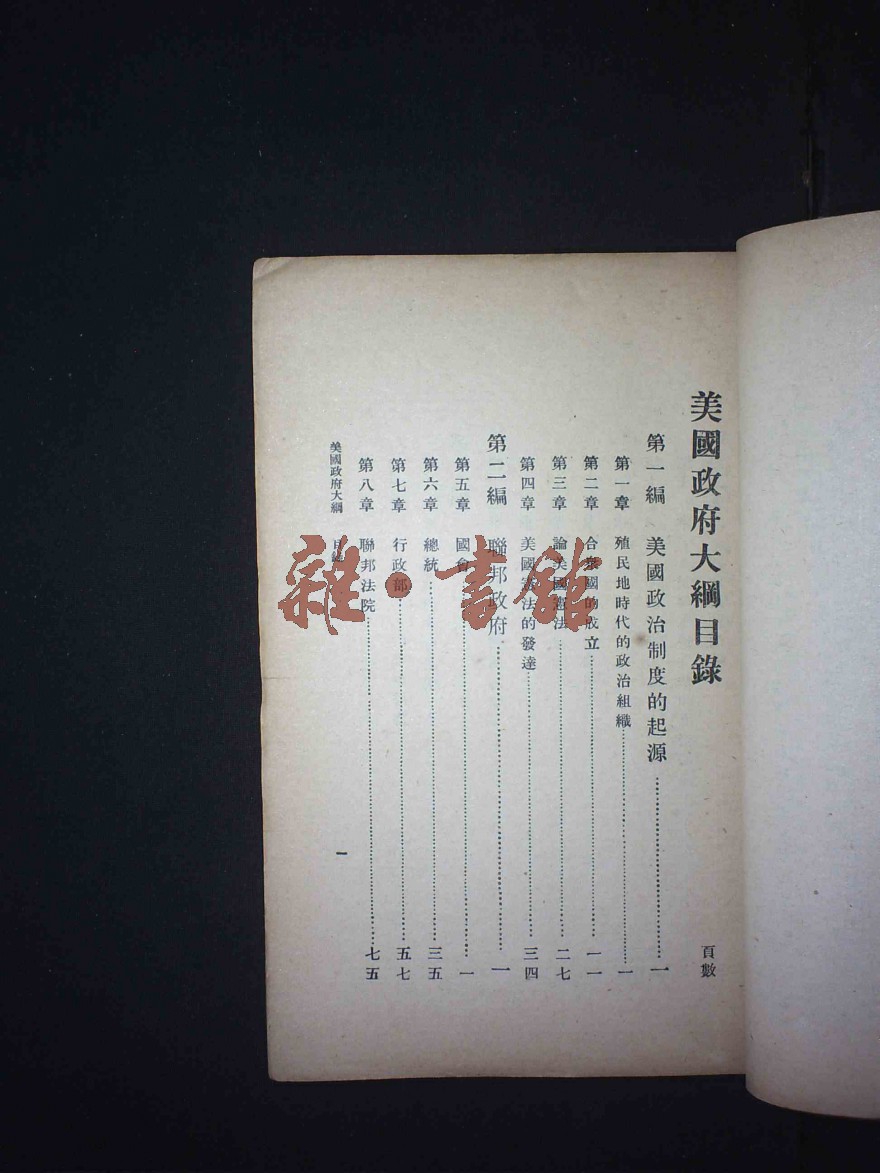 美國政府大綱目錄
頁數
第一編　美國政治制度的起源…………一
第一章　殖民地時代的政治組織…………一
第二章　合衆國的成立…………一一
第三章　論美國憲法…………二七
第四章　美國憲法的發達…………三四
第二編　聯邦政府…………一
第五章　國會…………一
第六章　總統…………三五
第七章　行政部…………五七
第八章　聯邦法院…………七五
美國政府大綱　目錄
一
雜·書館